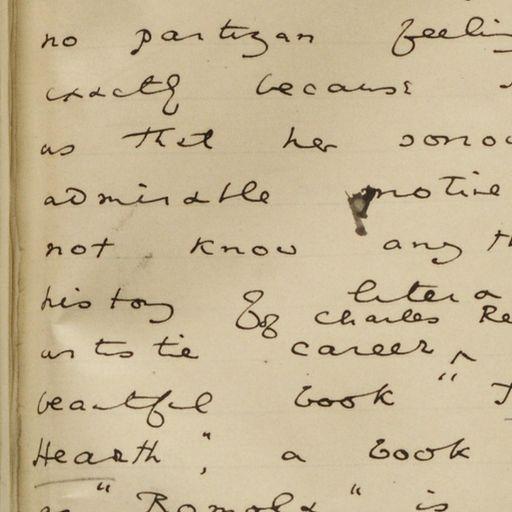 no partizan feelin
exactly because
as that her sono
admirable motive
not know any th
history of litera
of Charles Re
artistic career ^
beautiful book " T
Hearth ", a book
as " Romola " is